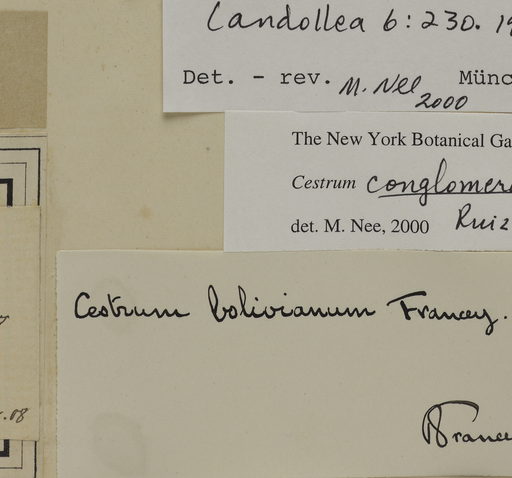 Candollea 6: 230. 19
Det. - rev. M. Nee Münc
2000
The New York Botanical Ga
Cestrum conglomer
det. M. Nee, 2000 Ruiz
Cestrum bolivianum Francey.
Francey
.08